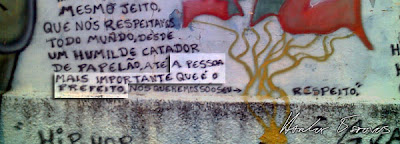 MESMO JEITO,
QUE NÓS RESPEITAMOS
TODO MUNDO, DESDE
UM HUMILDE CATADOR
DE PAPELÃO, ATÉ A PESSOA
MAIS IMPORTANTE QUE É O
PREFEITO, NÓS QUEREMOS SÓ O SEU → RESPEITO."
HIP HOP